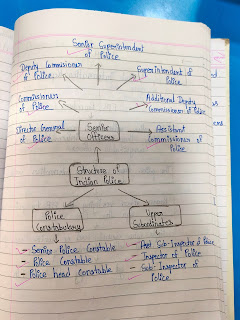 Senior Superintendent
of Police
Deputy Commissioner
of Police
Superintendent of
Police
Commissioner
of Police
Additional Deputy
Commissioner of Police
Director General
of Police
Senior
Officers
Assistant
Commissioner of
Police
Structure of
Indian Police
Police
Constabulary
Upper
Subordinates
- Senior Police Constable
- Police Constable
- Police head Constable
- Asst Sub-Inspector of Police
- Inspector of Police
- Sub-Inspector of
Police